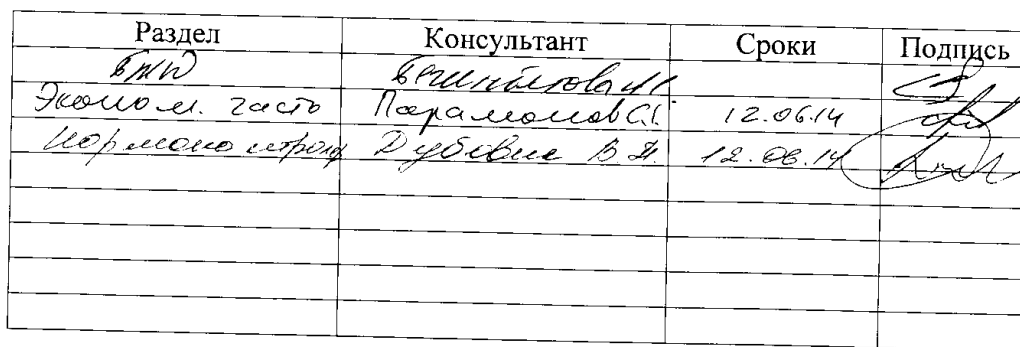 Раздел Консультант Сроки Подпись
БЖД
Эконом. часть Парамонов С.Г. 12.06.14
Дубовик В.Я. 12.06.14